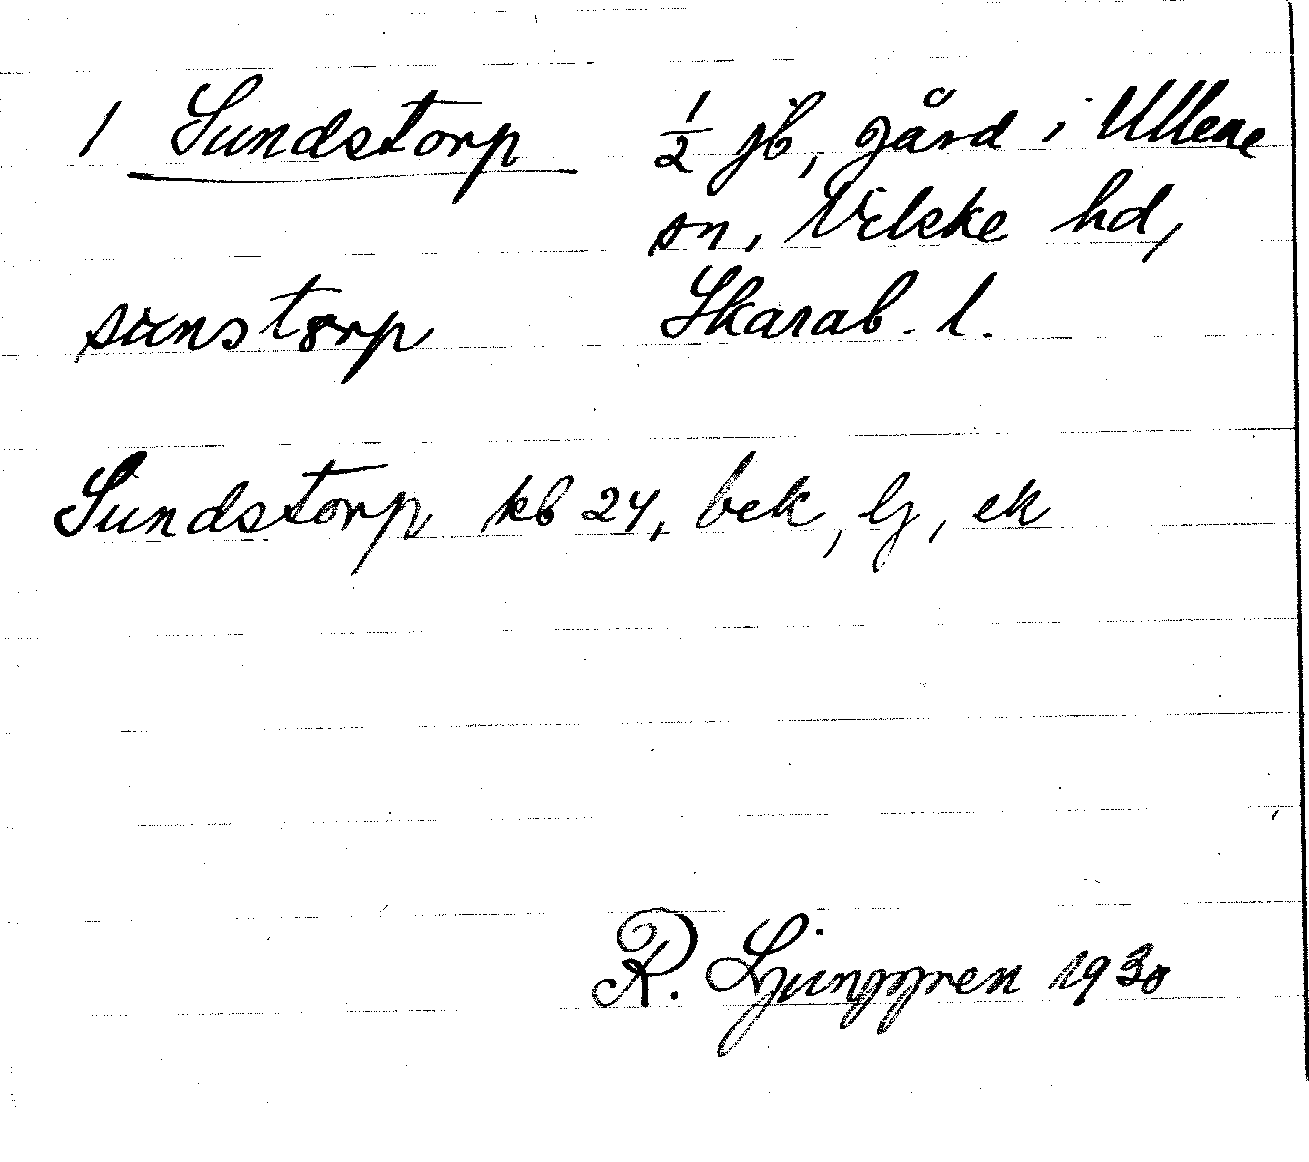 1 Sundstorp ½ jb, gård i Ullene
sn, Vilske hd,
Skarab. l.
sunstorp
Sundstorp kb 24, bek, lj, ek
R. Ljunggren 1930